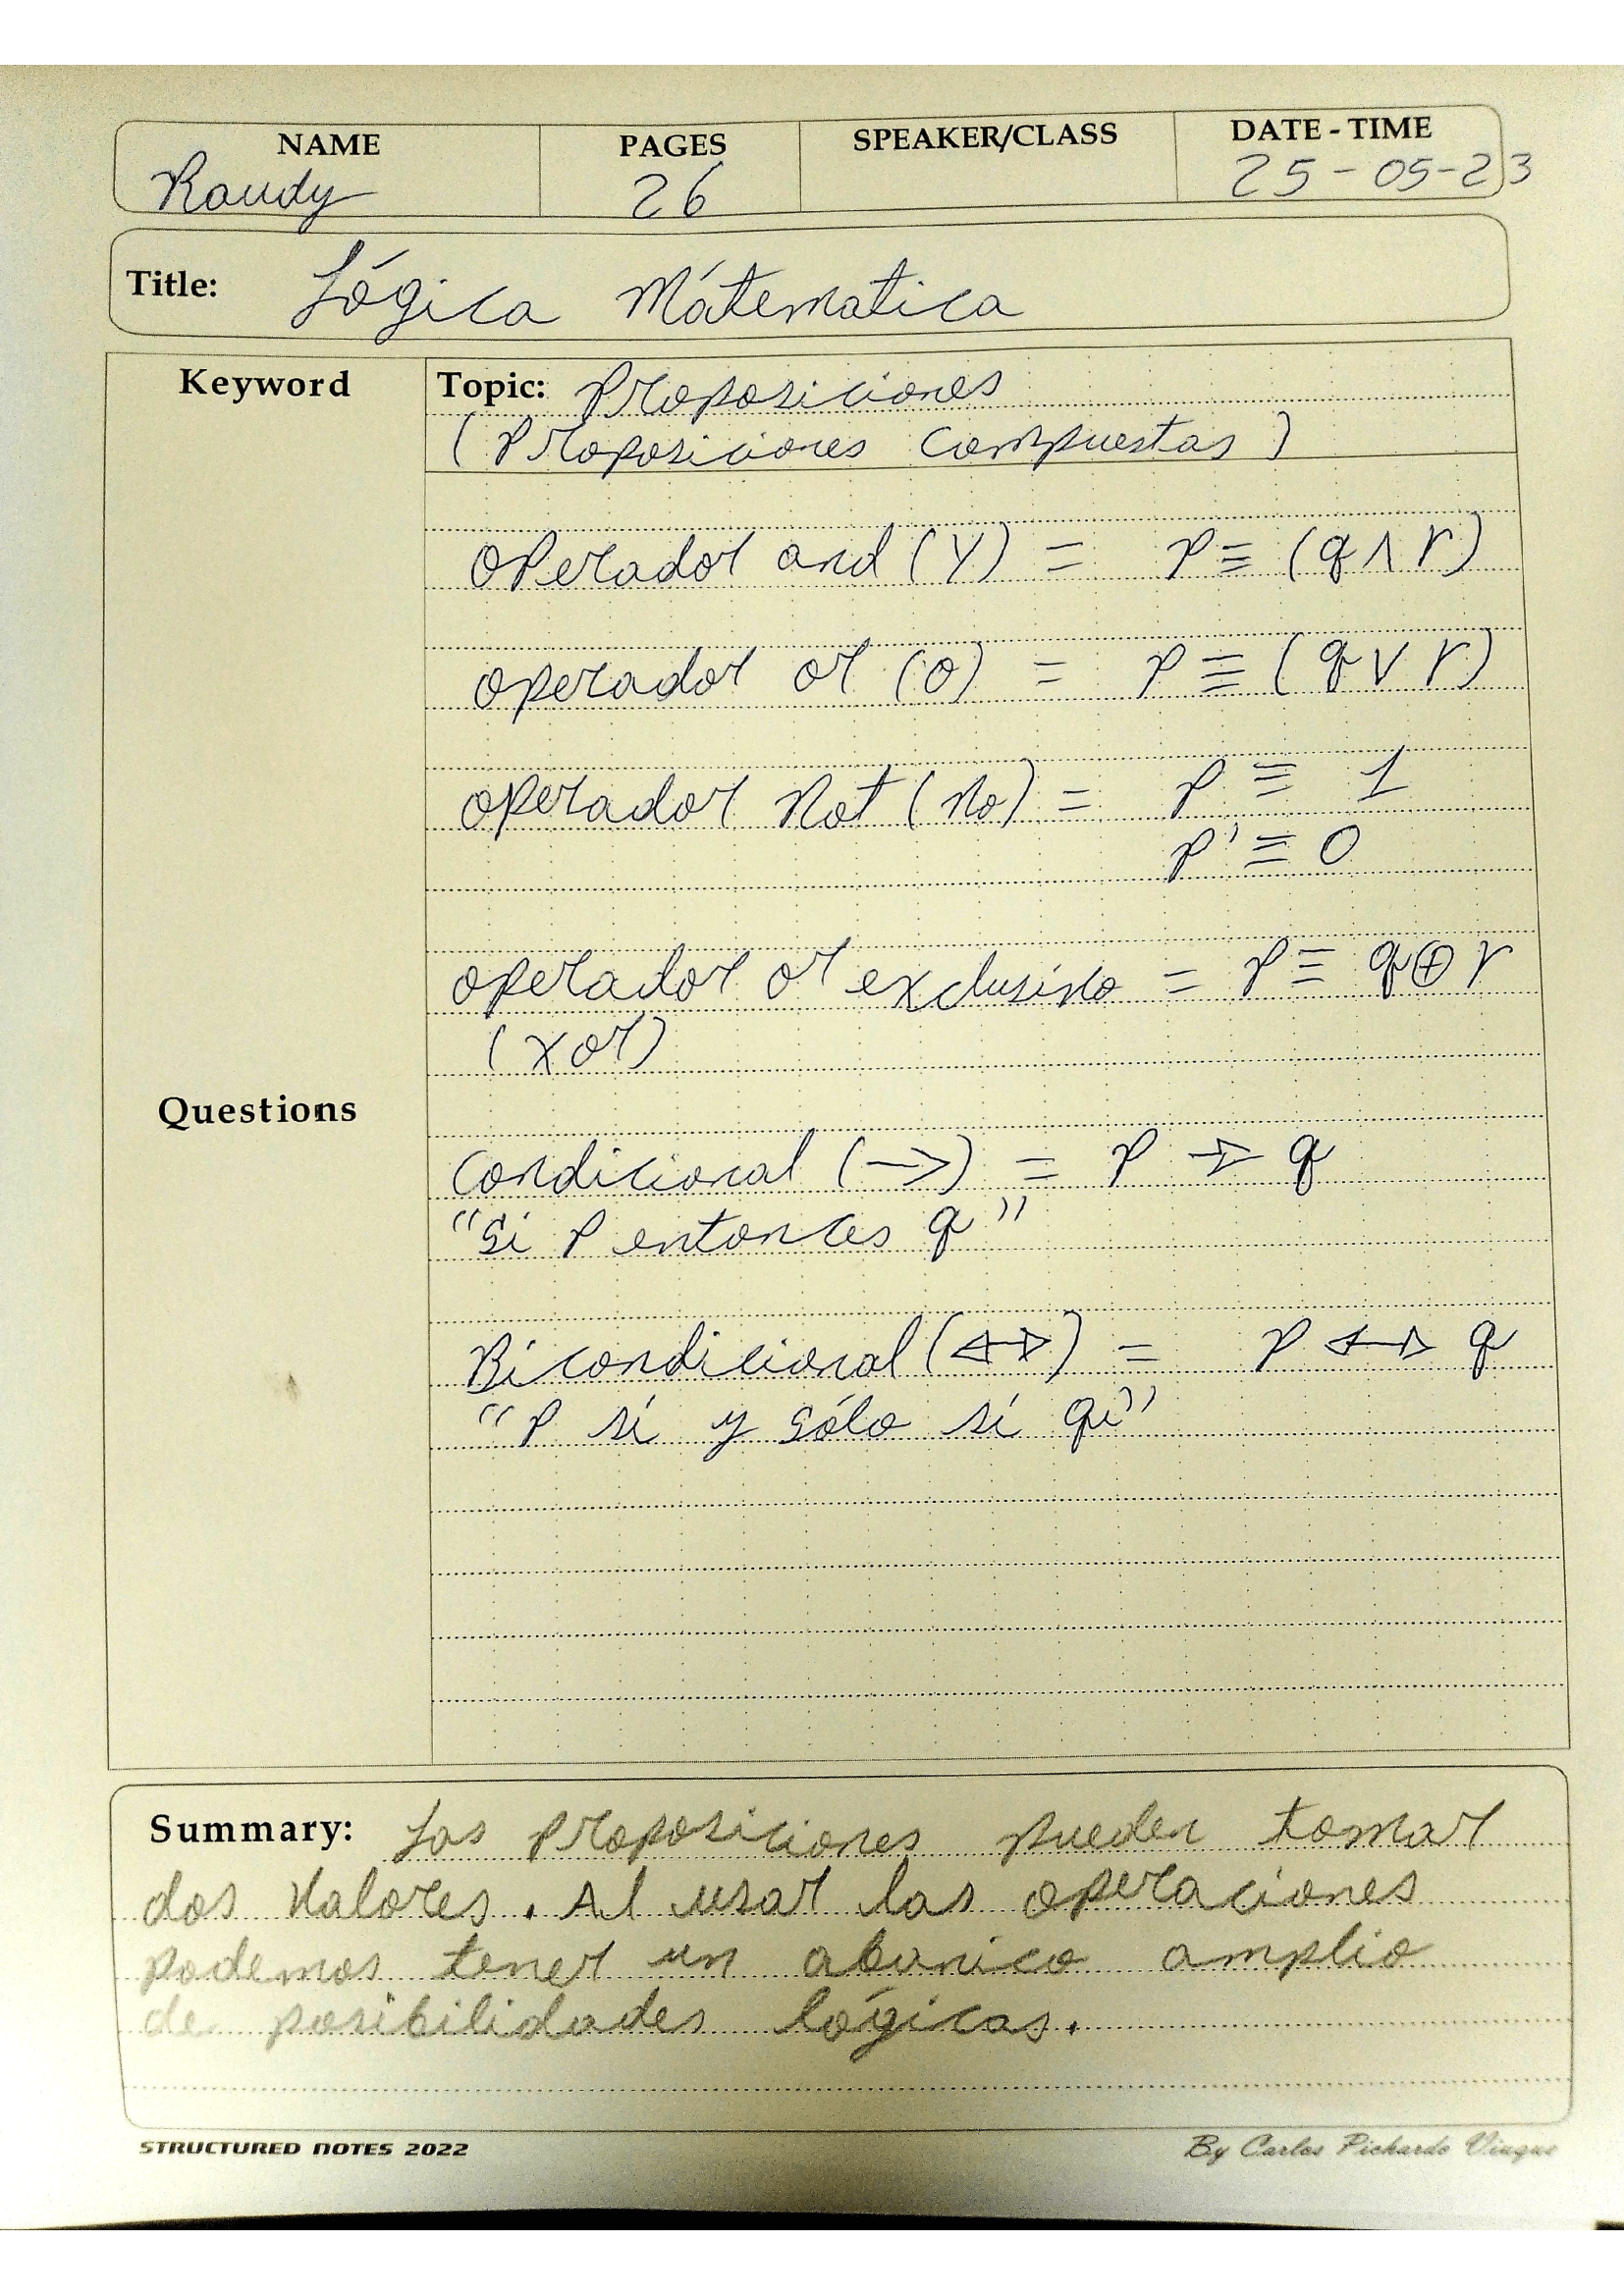 NAME PAGES SPEAKER/CLASS DATE - TIME
Raudy 26 25-05-23
Title: Lógica Mátematica
Keyword Topic: Proposiciones
(Proposiciones compuestas)
operador and (Y) = p ≡ (q ∧ r)
operador or (o) = p ≡ (q ∨ r)
operador Not (No) = p ≡ 1
p' ≡ 0
operador or exclusivo = p ≡ q ⊕ r
(xor)
Questions
Condicional (→) = p → q
"Si p entonces q"
Bicondicional (↔) = p ↔ q
"p sí y sólo sí q"
Summary: Las proposiciones pueden tomar
dos valores. Al usar las operaciones
podemos tener un abanico amplio
de posibilidades lógicas.
STRUCTURED NOTES 2022 By Carlos Pichardo Viuque